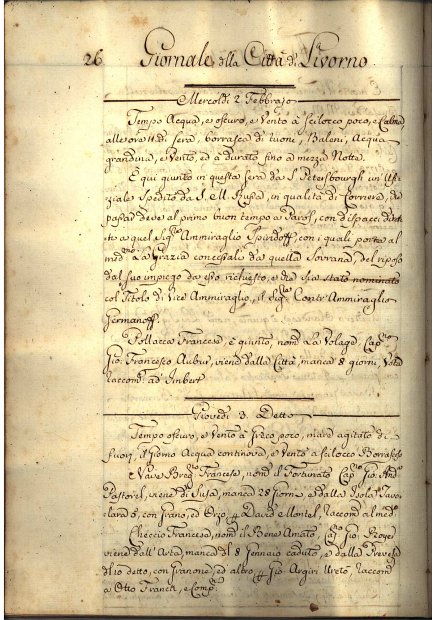 26 Giornale della Città di Livorno
Mercoldì 2 Febbrajo
Tempo Acqua, e oscuro, e vento à scilocco poco, e Calma
alle ore 11 di sera, borrasca di tuoni, Baleni, Acqua
grandina, e vento, ed à durato fino a mezza Notte.
È qui giunto in questa sera da S. Petersbourgh un Uffi-
ziale spedito da S. M. Russa, in qualità di Corriere, che
passar deve al primo buon tempo a Paros, con dispacci
a quel Sigre Ammiraglio Spiridoff, con i quali porta al
medmo La Grazia concessali da quella Sovrana, del riposo
dal suo impiego da esso richiesto, e che sia stato nominato
col Titolo di Vice Ammiraglio, il Sigre Contr'Ammiraglio
Pollacca Francese, è giunto, nomta La Volage, Capno
Gio: Francesco Aubur, viene dalla Città, manca 8 giorni, Vota
Raccomta ad Imbert
Giovedì 3. Detto
Tempo oscuro, e Vento à Greco poco, mare agitato di
fuori, il Giorno Acqua continova, e Vento a Scilocco Borrascoso
e Nave Francese, nomta il Fortunato Capno Gio: Andra
Pastorel, viene di Susa, manca 28 Giorni, e dalla Isola
5, con Grano, ed Orzo, David e Montel, Raccomta al medmo
Checcio Francese, nomto il Bene Amato, Capno Gio:
viene dall'Arta manca dal 8 Gennaio caduto, e dalla Prevesa
dl 10 detto, con Granone, ed altro, Gio: Argiri Vretò, Raccomta
a Otto Franck, e Compi